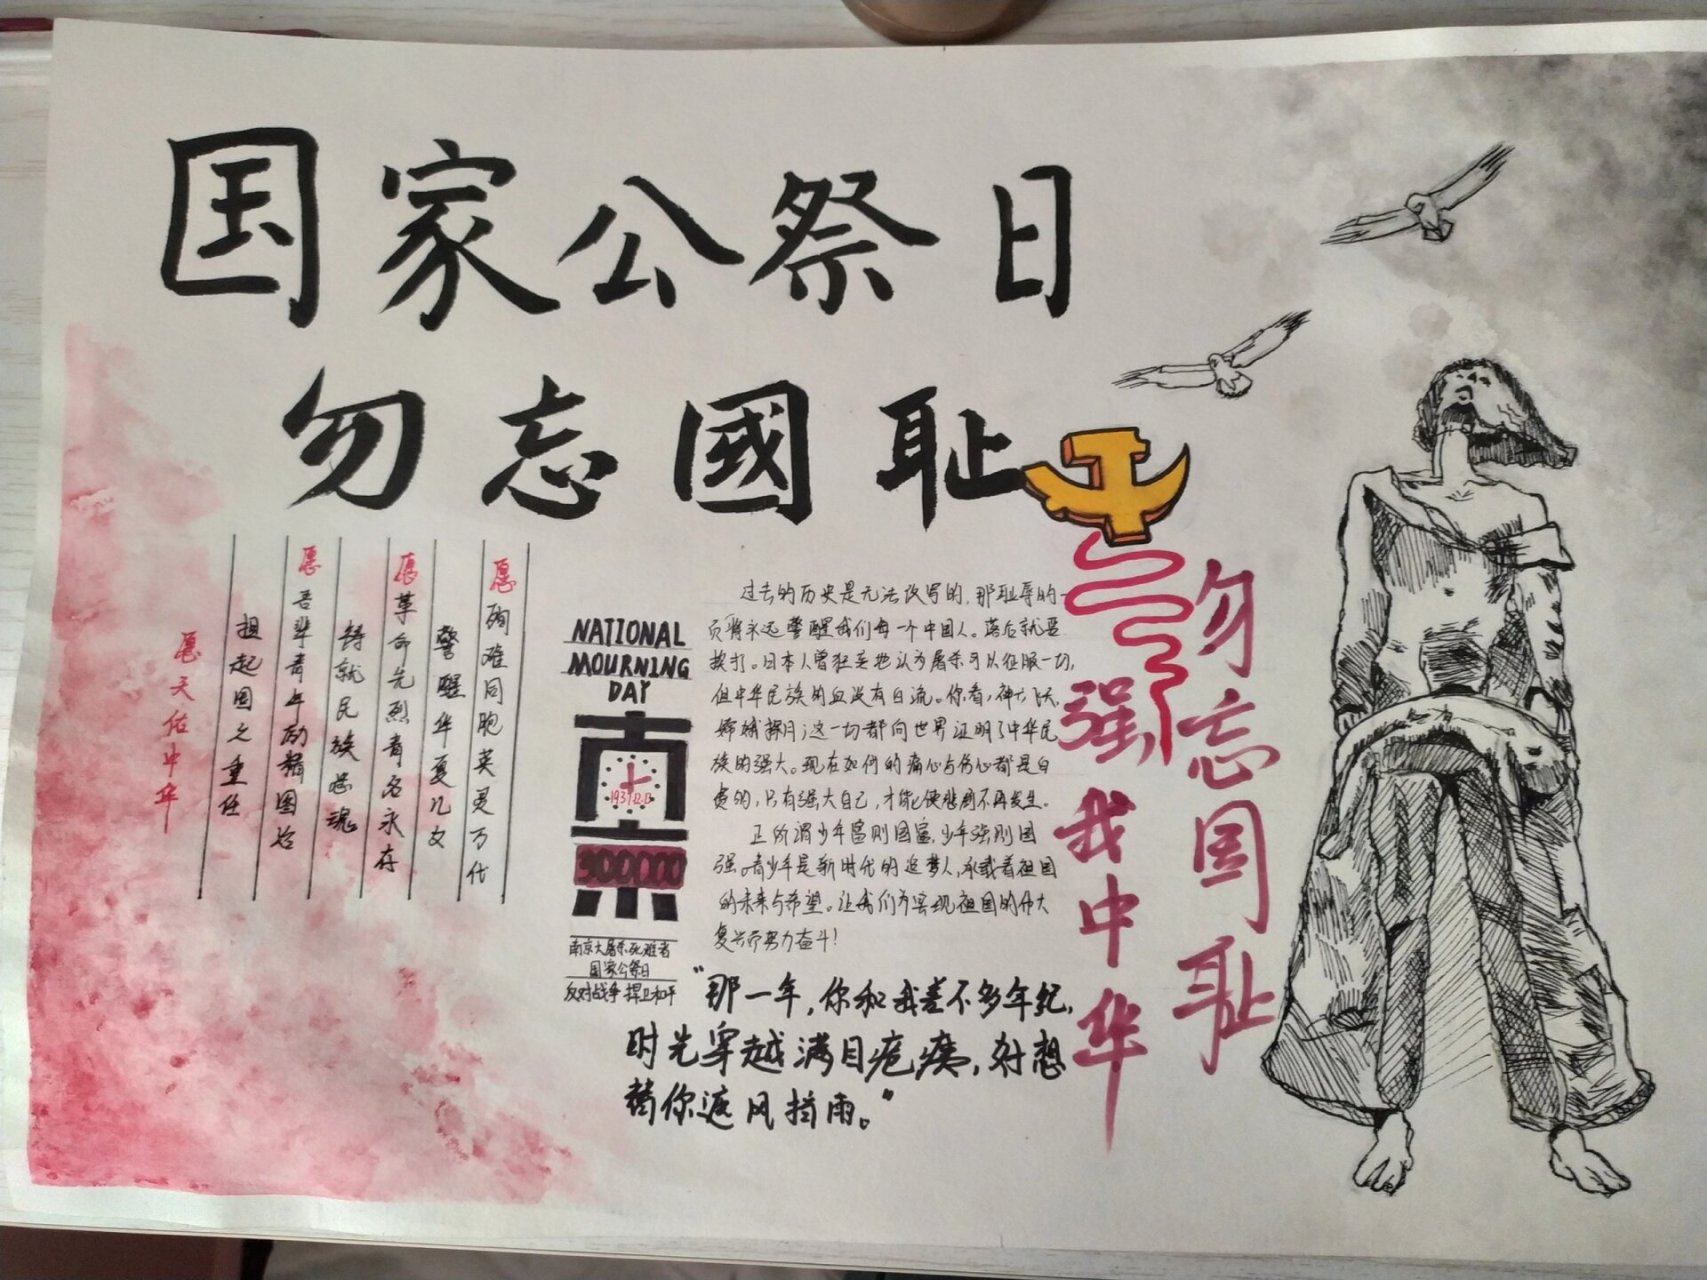 国家公祭日
勿忘國耻
愿殉难同胞英灵万代
警醒华夏儿女
愿革命先烈青名永存
铸就民族忠魂
愿吾辈青年励精图治
担起国之重任
愿天佑中华
NATIONAL
MOURNING
DAY
南京
1937.12.13
300000
南京大屠杀死难者
国家公祭日
反对战争 捍卫和平
过去的历史是无法改写的,那耻辱的一
页将永远警醒我们每一个中国人。落后就要
挨打。日本人曾狂妄地认为屠杀可以征服一切,
但中华民族的血没有白流。你看,神七飞天,
嫦娥探月,这一切都向世界证明了中华民
族的强大。现在如何的痛心与伤心都是白
费的,只有强大自己,才能使悲剧不再发生。
正所谓少年富则国富,少年强则国
强。青少年是新时代的追梦人,承载着祖国
的未来与希望。让我们为实现祖国的伟大
复兴而努力奋斗!
"那一年,你和我差不多年纪,
时光穿越满目疮痍,好想
替你遮风挡雨。"
勿忘国耻
强我中华